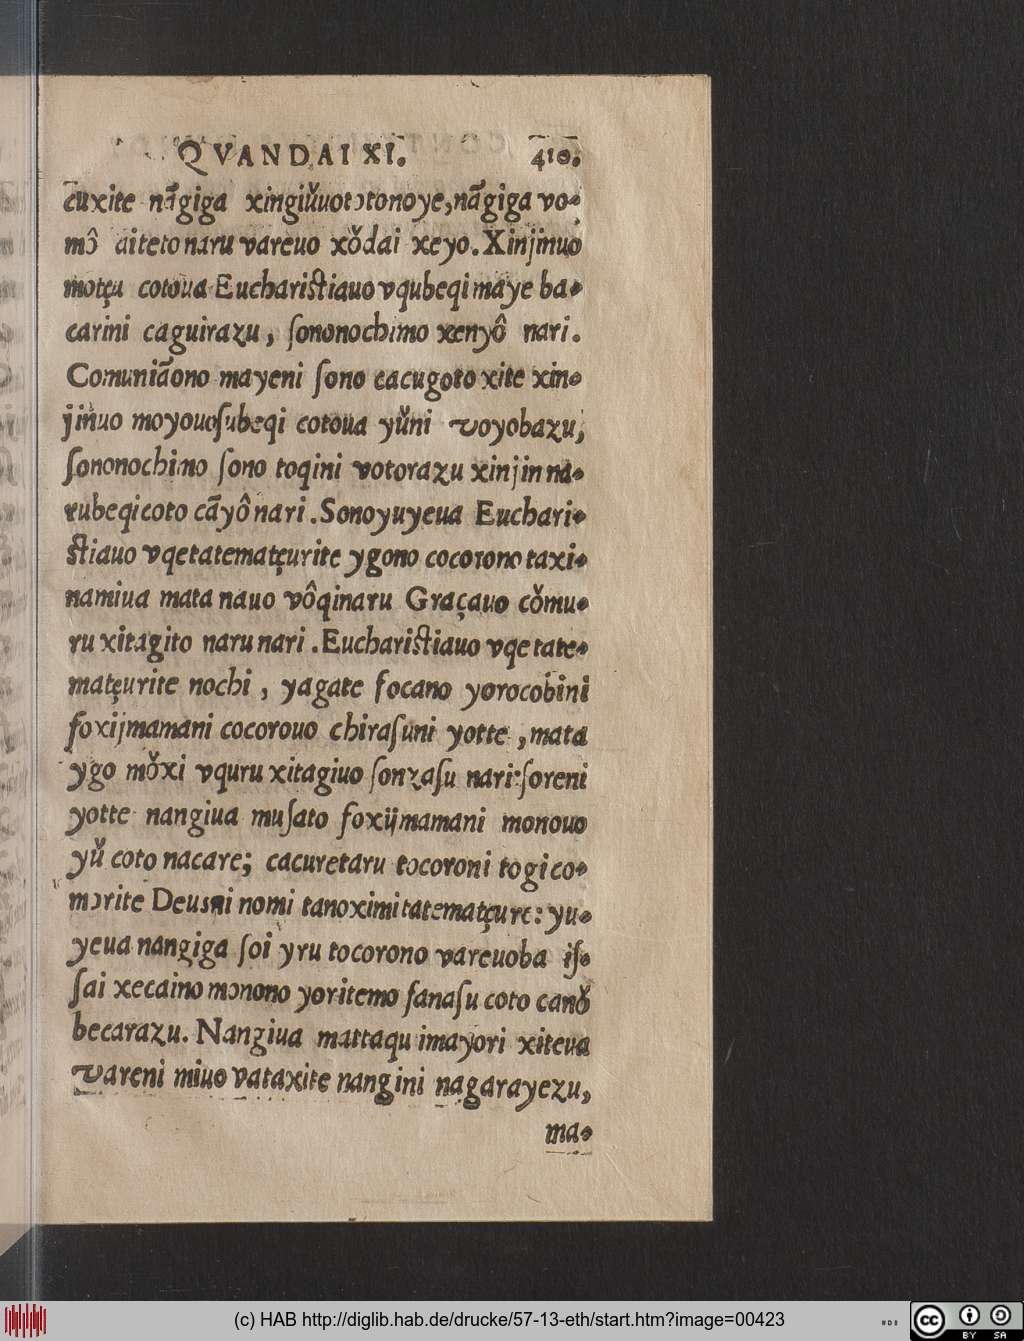 QVANDAI XI. 410.
cuxite nãgiga xingiǔuototonoye, nãgiga vo-
mõ aiteto naru vareuo xǒdai xeyo. Xinjinuo
motçu cotoua Euchariſtiauo vqubeqi maye ba-
carini caguirazu, ſononochimo xenyô nari.
Comuniãono mayeni ſono cacugoto xite xin-
jinuo moyouoſubeqi cotoua yǔni voyobazu,
ſononochimo ſono toqini votorazu xinjin na-
rubeqi coto cãyô nari. Sonoyuyeua Euchari-
ſtiauo vqetatematçurite ygono cocorono taxi-
namiua mata nauo vôqinaru Graçauo cǒmu-
ru xitagito naru nari. Euchariſtiauo vqe tate-
matçurite nochi, yagate focano yorocobini
foxijmamani cocorouo chiraſuni yotte, mata
ygo mǒxi vquru xitagiuo ſonzaſu nari: ſoreni
yotte nangiua muſato foxijmamani monouo
yǔ coto nacare; cacuretaru tocoroni togico-
morite Deusni nomi tanoximi tatematçure: yu-
yeua nangiga ſoi yru tocorono vareuoba iſ-
ſai xecaino monono yoritemo fanaſu coto canǒ
becarazu. Nangiua mattaqu imayori xiteua
vareni miuo vataxite nangini nagarayezu,
ma-
(c) HAB http://diglib.hab.de/drucke/57-13-eth/start.htm?image=00423
cc BY SA